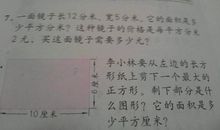 7、一面镜子长12分米，宽5分米，它的面积是多
少平方分米？这种镜子的价格是每平方分米
2元，买这面镜子需要多少元？
李小林要从左边的长方
形纸上剪下一个最大的
正方形，剩下部分是什
么图形？它的面积是多
少平方厘米？
6厘米
10厘米